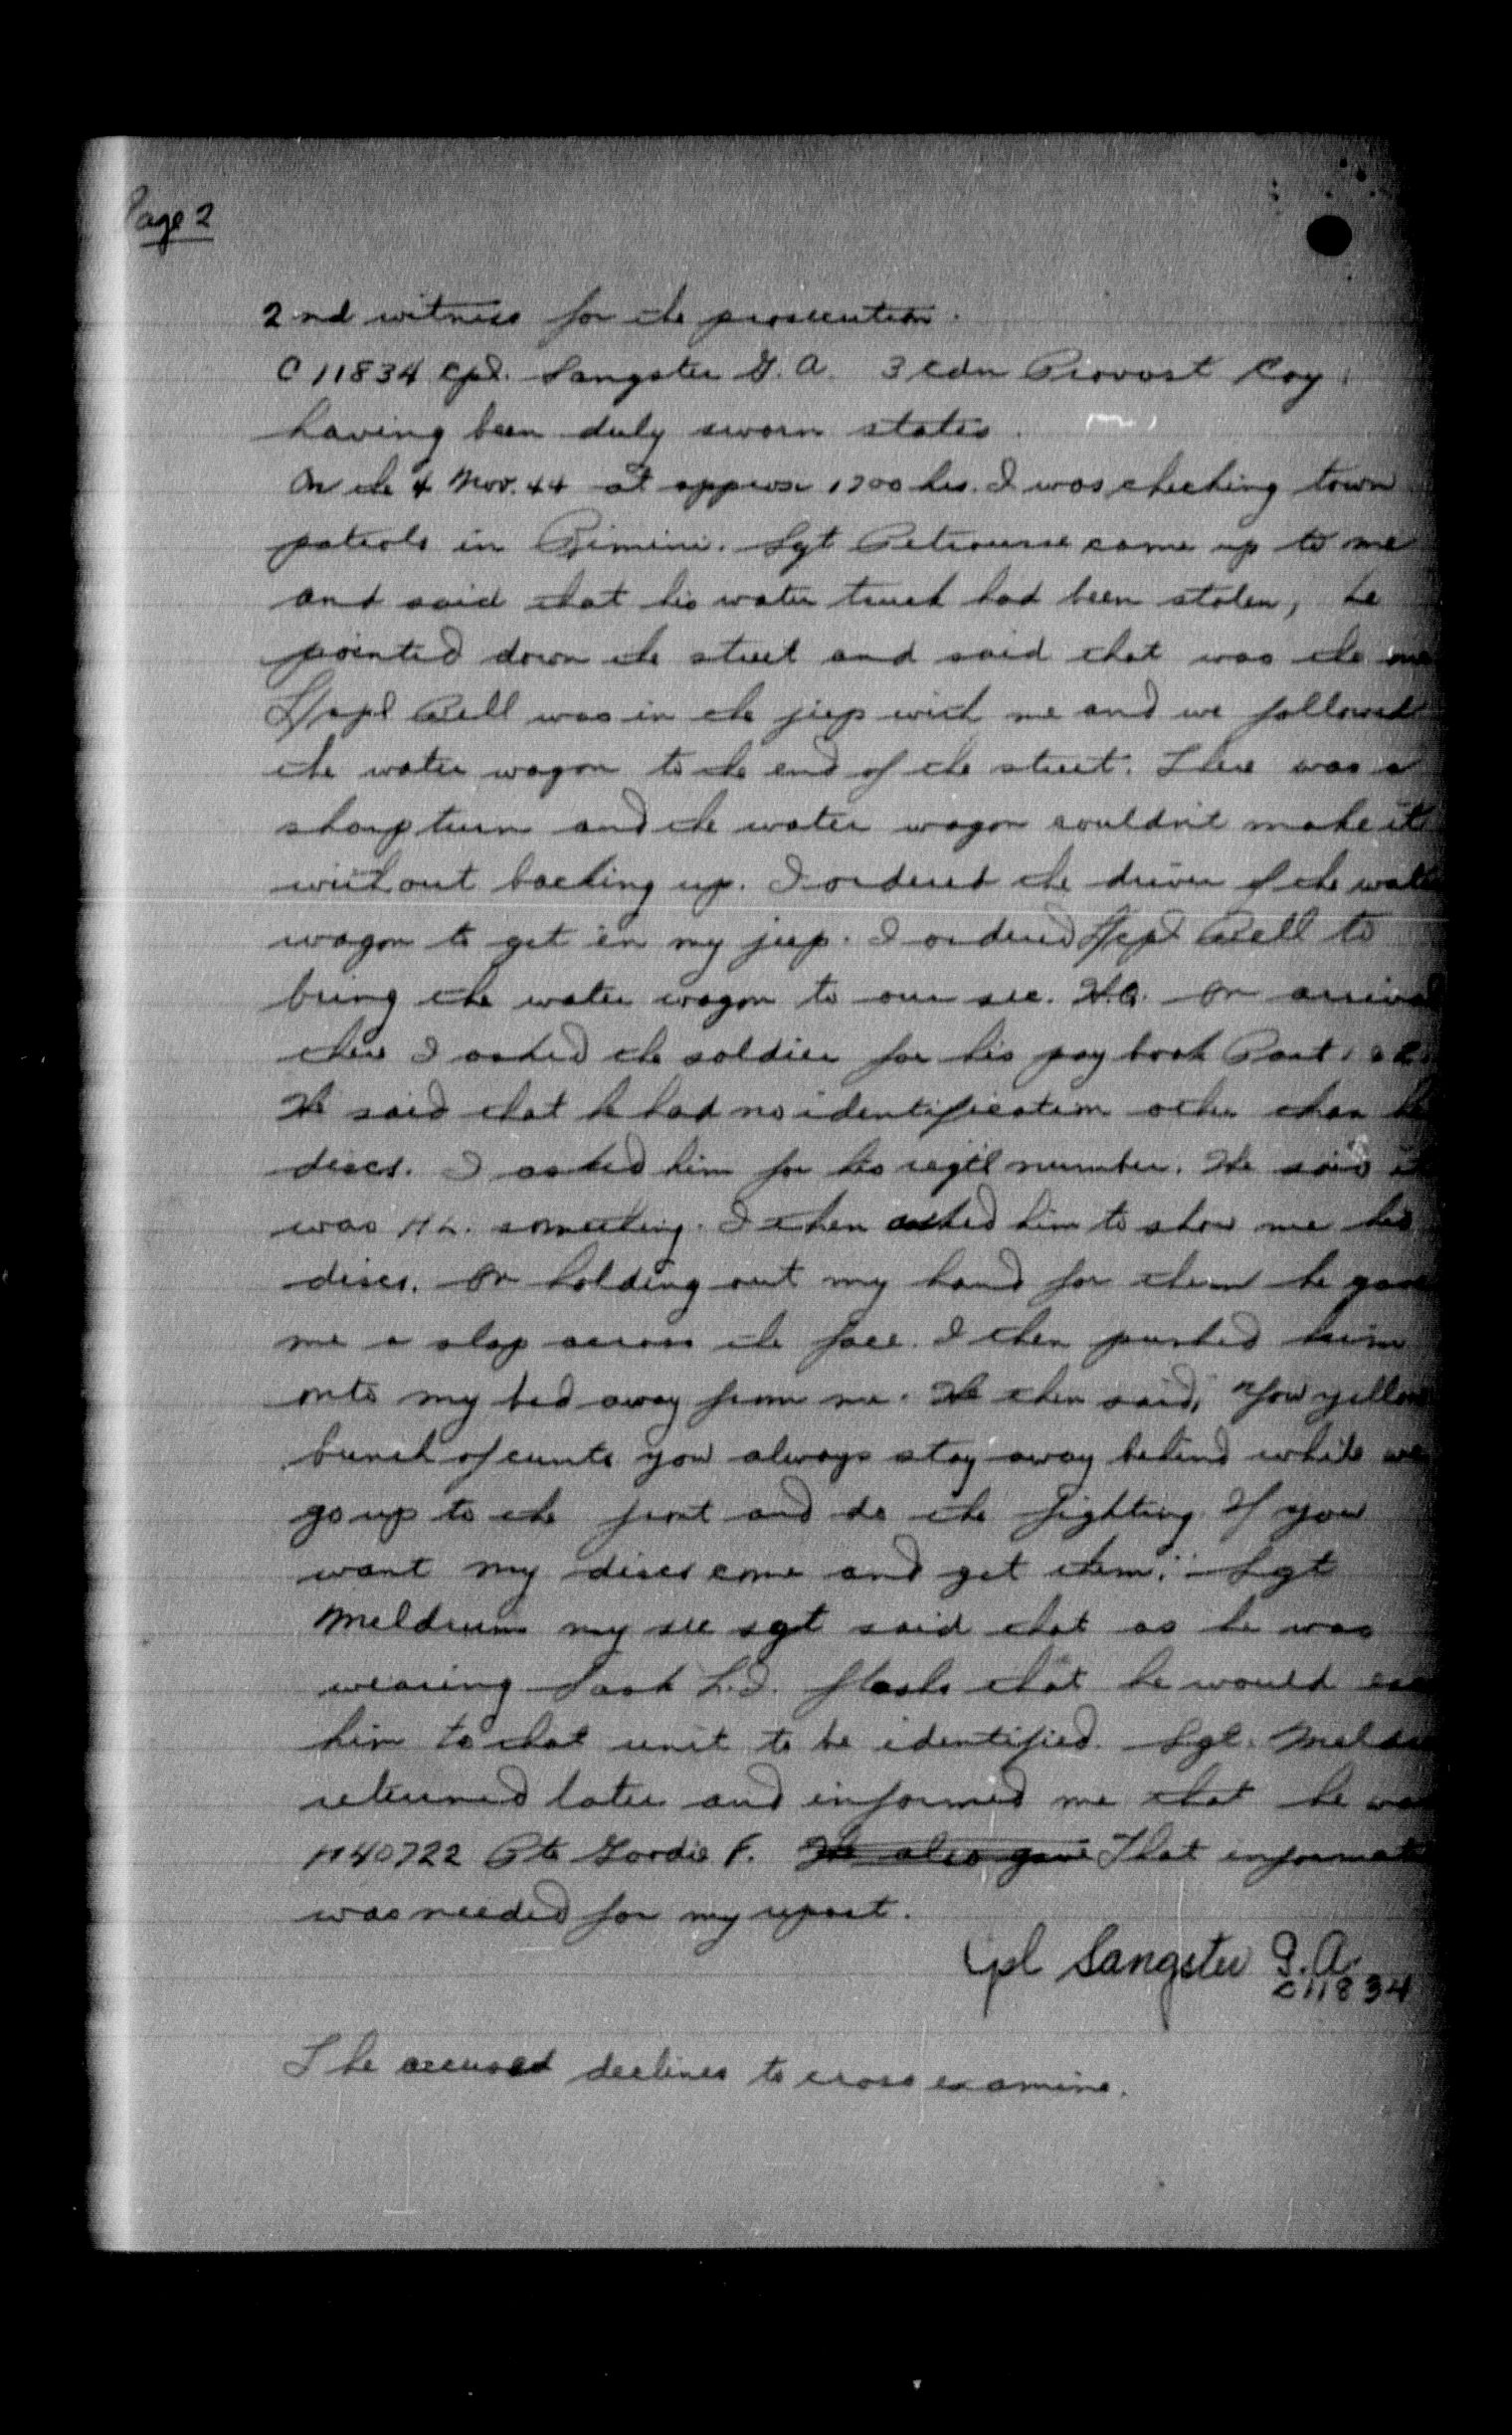 Page 2
2nd witness for the prosecution.
C 11834 Cpl. Sangster G. A. 3 Cdn Provost Coy.
having been duly sworn states.
On the 4 Nov. 44 at approx 1700 hrs. I was checking town
patrols in Rimini. Sgt came up to me
and said that his water truck had been stolen, he
pointed down the street and said that was the one
L/Cpl Bell was in the jeep with me and we followed
the water wagon to the end of the street. There was a
sharp turn and the water wagon couldn't make it
without backing up. I ordered the driver of the water
wagon to get in my jeep. I ordered L/Cpl Bell to
bring the water wagon to our sec. H.Q. On arrival
there I asked the soldier for his pay book Part 1
He said that he had no identification other than his
discs. I asked him for his regtl number. He said it
was H L. something. I then asked him to show me his
discs. On holding out my hand for them he gave
me a slap across the face. I then pushed him
onto my bed away from me. He then said, "You yellow
bunch of cunts you always stay away behind while we
go up to the front and do the fighting. If you
want my discs come and get them." Sgt
Meldrum my sec sgt said that as he was
wearing Sask L.I. flashs that he would
him to that unit to be identified. Sgt. Meldrum
returned later and informed me that he was
H40722 Pte Gordie F. He also gave That informat
was needed for my report.
Cpl Sangster G. A.
C11834
The accused declines to cross examine.